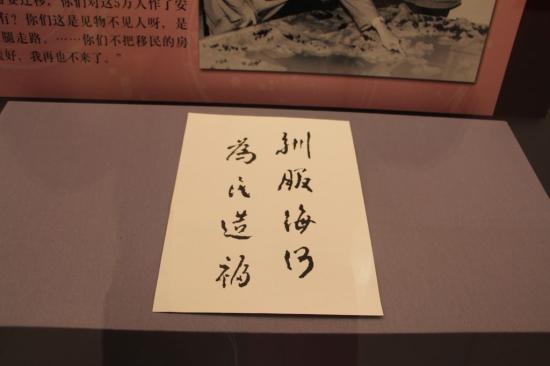 要迁移，你们对这5万人作了安
有？你们这是见物不见人呀，是
腿走路。……你们不把移民的房
好，我再也不来了。”
馴服海河
為民造福